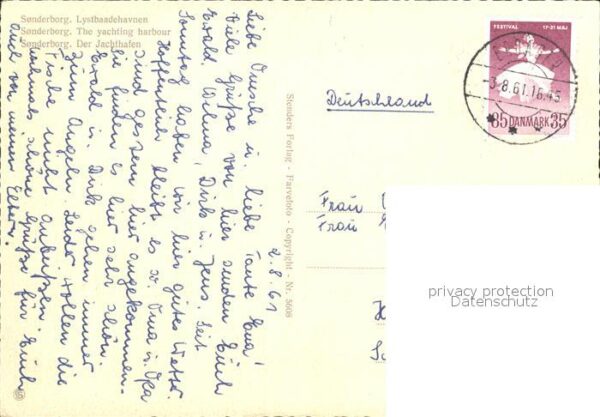 Sønderborg. Lystbaadehavnen
Sønderborg. The yachting harbour
Sønderborg. Der Jachthafen
2.8.61
Liebe Omschi u. liebe Tante Ema!
Viele Grüße von hier senden Euch
Ewald, Wilma, Dirk u. Jens. Seit
Sonntag haben wir hier gutes Wetter.
Hoffentlich bleibt es so. Oma u. Opa
sind gestern hier angekommen.
Sie finden es hier sehr schön.
Ewald u. Dirk gehen immer
zum Angeln. Leider wollen die
Fische nicht anbeißen.
Nochmals schöne Grüße für Euch
Auch von meinen Eltern!
Stenders Forlag - Farvefoto - Copyright - Nr. 5608
FESTIVAL 17-31 MAJ
35 DANMARK 35
-3.8.61.16.45
Deutschland
Frau
Frau
privacy protection
Datenschutz